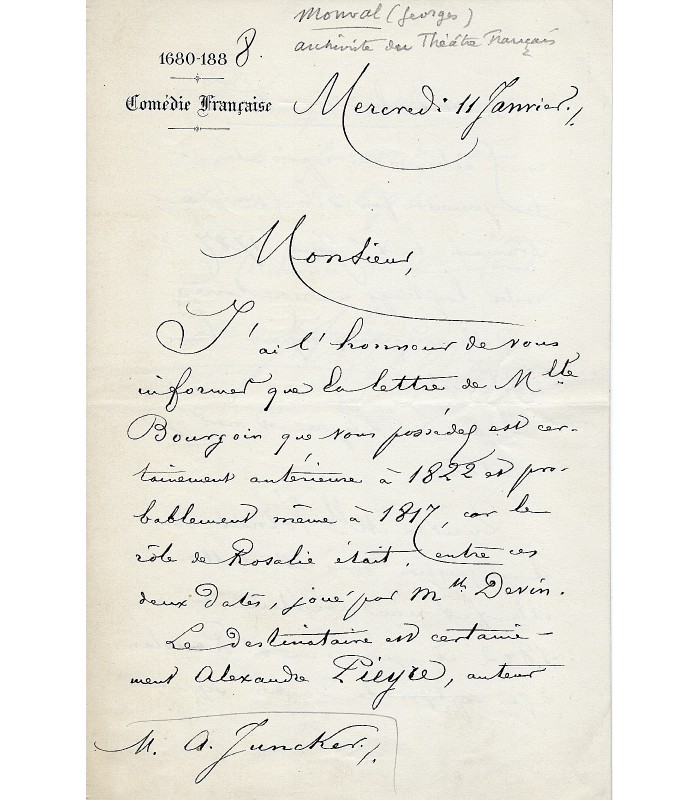 Monval (Georges)
archiviste du Théâtre Français
1680-1888.
Comédie Française
Mercredi 11 Janvier./.
Monsieur,
J'ai l'honneur de vous
informer que la lettre de Mlle
Bourgoin que vous possédez est cer-
tainement antérieure à 1822 et pro-
bablement même à 1817, car le
rôle de Rosalie était, entre ces
deux dates, joué par Mlle Devin.
Le destinataire est certaine-
ment Alexandre Pieyre, auteur
M. A. Juncker./.